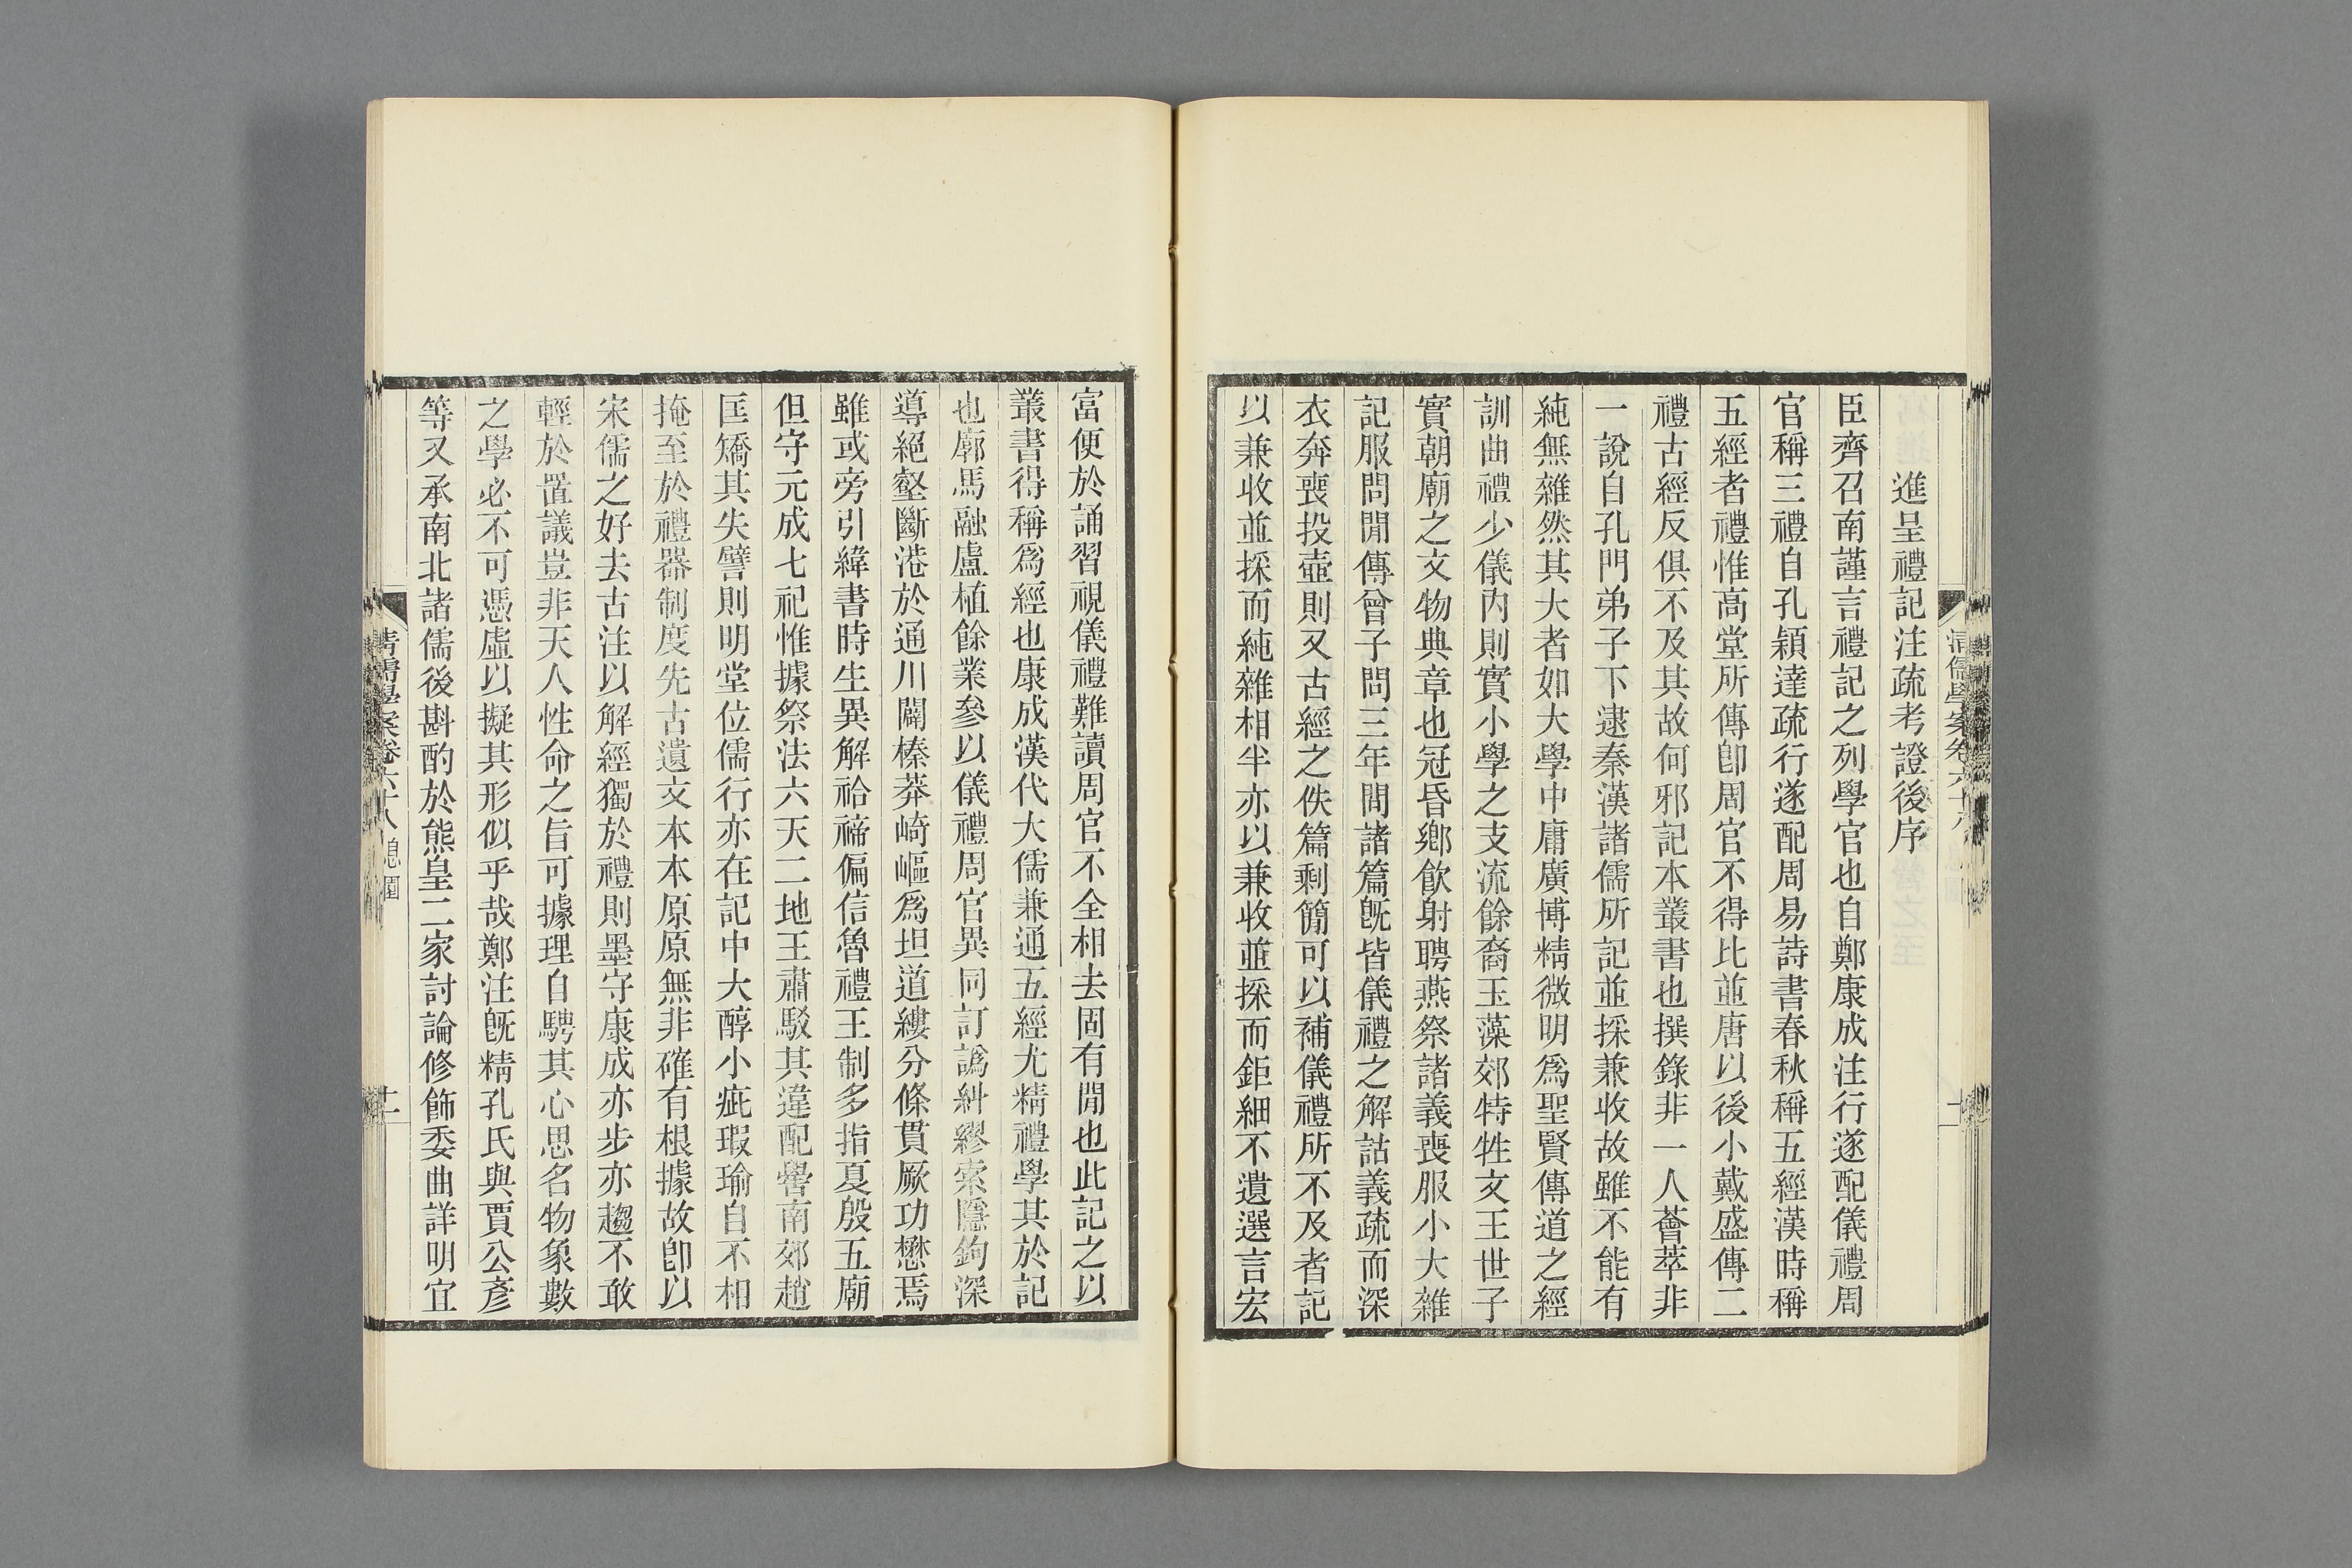 進呈禮記注疏考證後序
臣齊召南謹言禮記之列學官也自鄭康成注行遂配儀禮周
官稱三禮自孔穎達疏行遂配周易詩書春秋稱五經漢時稱
五經者禮惟高堂所傳卽周官不得比並唐以後小戴盛傳二
禮古經反俱不及其故何邪記本叢書也撰錄非一人薈萃非
一說自孔門弟子下逮秦漢諸儒所記並採兼收故雖不能有
純無雜然其大者如大學中庸廣博精微明爲聖賢傳道之經
訓曲禮少儀內則實小學之支流餘裔玉藻郊特牲文王世子
實朝廟之文物典章也冠昏鄕飮射聘燕祭諸義喪服小大雜
記服問閒傳曾子問三年問諸篇旣皆儀禮之解詁義疏而深
衣奔喪投壺則又古經之佚篇剩簡可以補儀禮所不及者記
以兼收並採而純雜相半亦以兼收並採而鉅細不遺選言宏
富便於誦習視儀禮難讀周官不全相去固有閒也此記之以
叢書得稱爲經也康成漢代大儒兼通五經尤精禮學其於記
也廓馬融盧植餘業參以儀禮周官異同訂譌糾繆索隱鉤深
導絕壑斷港於通川闢榛莽崎嶇爲坦道縷分條貫厥功懋焉
雖或旁引緯書時生異解祫禘偏信魯禮王制多指夏殷五廟
但守元成七祀惟據祭法六天二地王肅駁其違配嚳南郊趙
匡矯其失譬則明堂位儒行亦在記中大醇小疵瑕瑜自不相
掩至於禮器制度先古遺文本本原原無非確有根據故卽以
宋儒之好去古注以解經獨於禮則墨守康成亦步亦趨不敢
輕於置議豈非天人性命之旨可據理自騁其心思名物象數
之學必不可憑虛以擬其形似乎哉鄭注旣精孔氏與賈公彥
等又承南北諸儒後斟酌於熊皇二家討論修飾委曲詳明宜
清儒學案卷六十八 息園
十二